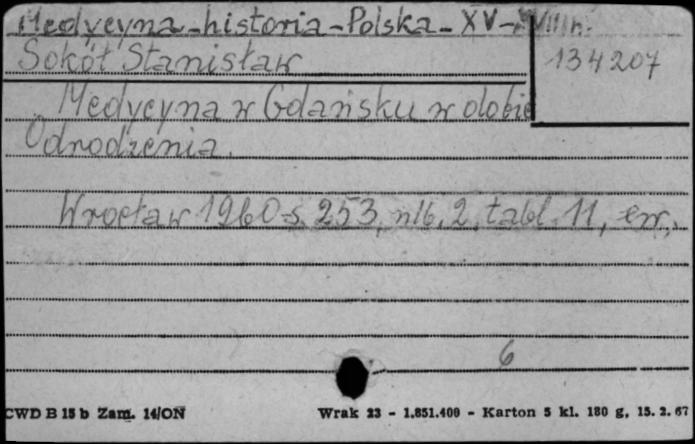 Medycyna-historia-Polska-XV-XVIII w.
Sokół Stanisław
134207
Medycyna w Gdańsku w dobie
Odrodzenia.
Wrocław 1960 s. 253, nlb. 2, tabl. 11, err.,
6
CWD B 15 b Zam. 14/ON
Wrak 23 - 1.851.400 - Karton 5 kl. 180 g, 15. 2. 67